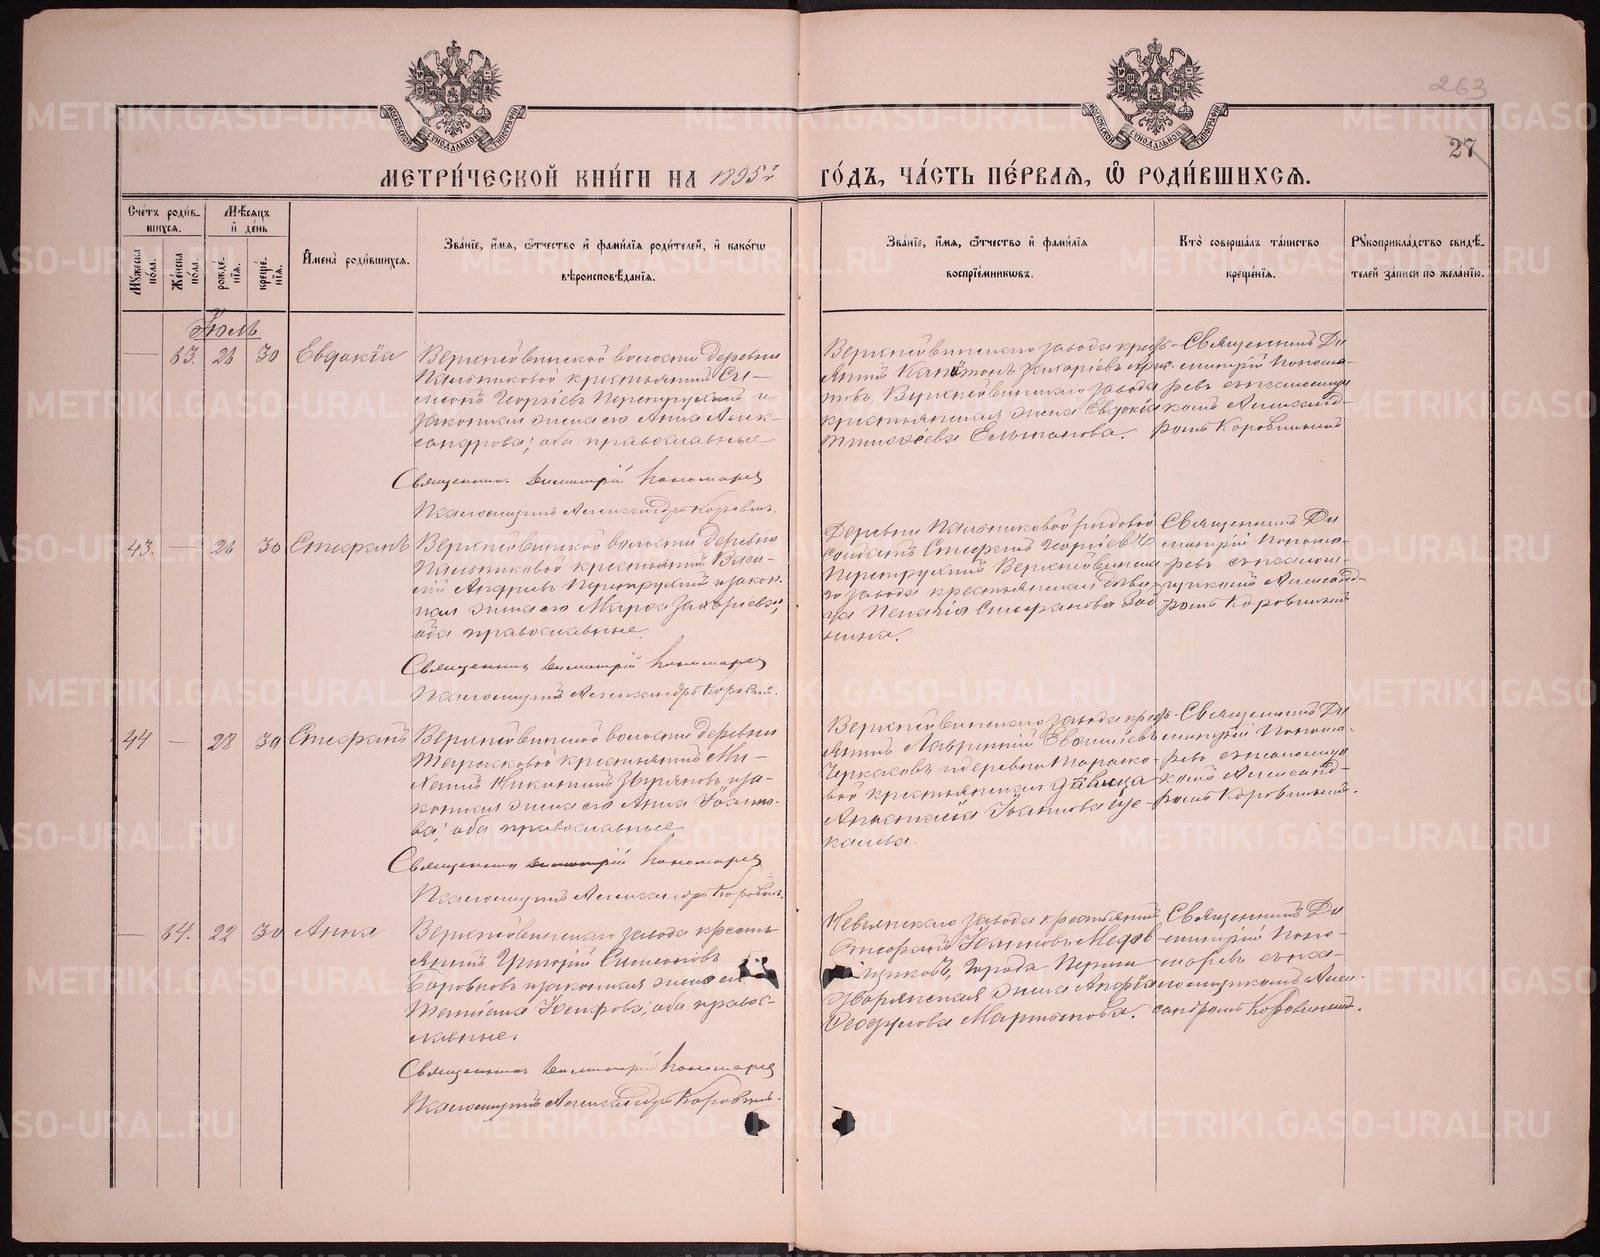 263
27
МЕТРИ́ЧЕСКОЙ КНИ́ГИ НА 1895й ГО́ДЪ, ЧА́СТЬ ПЕ́РВАЯ, Ѡ РОДИ́ВШИХСЯ.
Счётъ роди́вшихся.
Мѣсяцъ и де́нь
Му́жеска по́ла.
Же́нска по́ла.
рожде́нія.
креще́нія.
Имена̀ роди́вшихся.
Зва́ніе, и́мя, ѻ́тчество и фами́лія роди́телей, и како́гѡ
вѣроисповѣ́данія.
Зва́ніе, и́мя, ѻ́тчество и фами́лія
воспріе́мниковъ.
Кто̀ соверша́лъ та́инство
креще́нія.
Рукоприкла́дство свидѣ́-
телей за́писи по жела́нію.
Іюль
— 63. 26 30 Евдокія
Верхнейвинской волости деревни
Пальниковой крестьянинъ Си-
меонъ Георгіевъ Перетрухинъ и
законная жена его Анна Алек-
сандрова; оба православные
Священникъ Димитрій Пономаревъ
Псаломщикъ Александръ Коровинъ.
Верхнейвинскаго завода крест-
янинъ Захаріевъ
Верхнейвинскаго завода
крестьянская жена Евдокія
Тимофеева Ельтанова.
Священникъ Ди-
митрій Понома-
ревъ съ псаломщи-
комъ Александ-
ромъ Коровинымъ
43. — 26 30 Стефанъ
Верхнейвинской волости деревни
Пальниковой крестьянинъ Васи-
лій Андреевъ Перетрухинъ и закон-
ная жена его Марѳа Захаріева;
оба православные.
Священникъ Димитрій Пономаревъ
Псаломщикъ Александръ Коровинъ.
Деревни Пальниковой рядовой
солдатъ Стефанъ Георгіевъ
Перетрухинъ Верхнейвинска-
го завода крестьянская дѣви-
ца Пелагія Стефанова
Священникъ Ди-
митрій Понома-
ревъ съ псалом-
щикомъ Александ-
ромъ Коровинымъ
44 — 28 30 Стефанъ
Верхнейвинской волости деревни
Тарасковой крестьянинъ Ми-
хаилъ Никитинъ Зыряновъ и за-
конная жена его Анна Іоанно-
ва; оба православные
Священникъ Димитрій Пономаревъ
Псаломщикъ Александръ Коровинъ.
Верхнейвинскаго завода крест-
янинъ Лаврентій
Черкасовъ и деревни Тараско-
вой крестьянская дѣвица
Анастасія Іоаннова
Священникъ Ди-
митрій Понома-
ревъ съ псаломщи-
комъ Александ-
ромъ Коровинымъ.
— 64. 22 30 Анна
Верхнейвинскаго завода кресть-
янинъ Григорій Симеоновъ
Боровковъ и законная жена его
Татіана; оба правос-
лавные.
Священникъ Димитрій Пономаревъ
Псаломщикъ Александръ Коровинъ.
Невьянскаго завода крестьянинъ
Стефанъ Іоанновъ
города Перми
жена
Ѳеодулова Мартынова.
Священникъ Ди-
митрій Поно-
маревъ съ пса-
ломщикомъ Алек-
сандромъ Коровинымъ.
METRIKI.GASO-URAL.RU